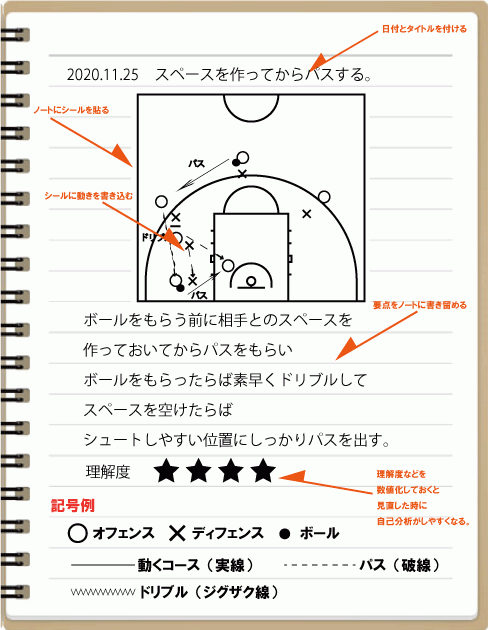 日付とタイトルを付ける
2020.11.25 スペースを作ってからパスする。
ノートにシールを貼る
パス
シールに動きを書き込む
ドリブル
パス
要点をノートに書き留める
ボールをもらう前に相手とのスペースを
作っておいてからパスをもらい
ボールをもらったらば素早くドリブルして
スペースを空けたらば
シュートしやすい位置にしっかりパスを出す。
理解度 ★★★★
理解度などを
数値化しておくと
見直した時に
自己分析がしやすくなる。
記号例
オフェンス ディフェンス ボール
動くコース（実線） パス（破線）
ドリブル（ジグザク線）